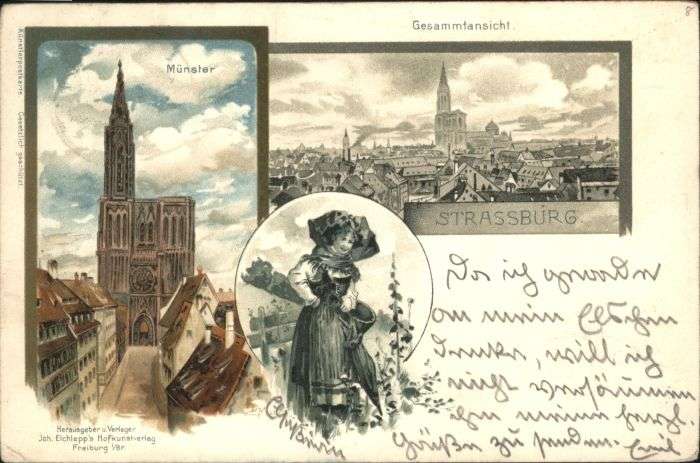 8
Gesammtansicht.
Münster
Künstlerpostkarte. Gesetzlich geschützt.
STRASSBURG
Da ich gerade
an mein Elschen
denke, will ich
nicht versäumen
ihr meine herzl.
Grüße zu senden. Emil
Herausgeber u. Verleger
Joh. Elchlepp's Hofkunstverlag
Freiburg i/Br.